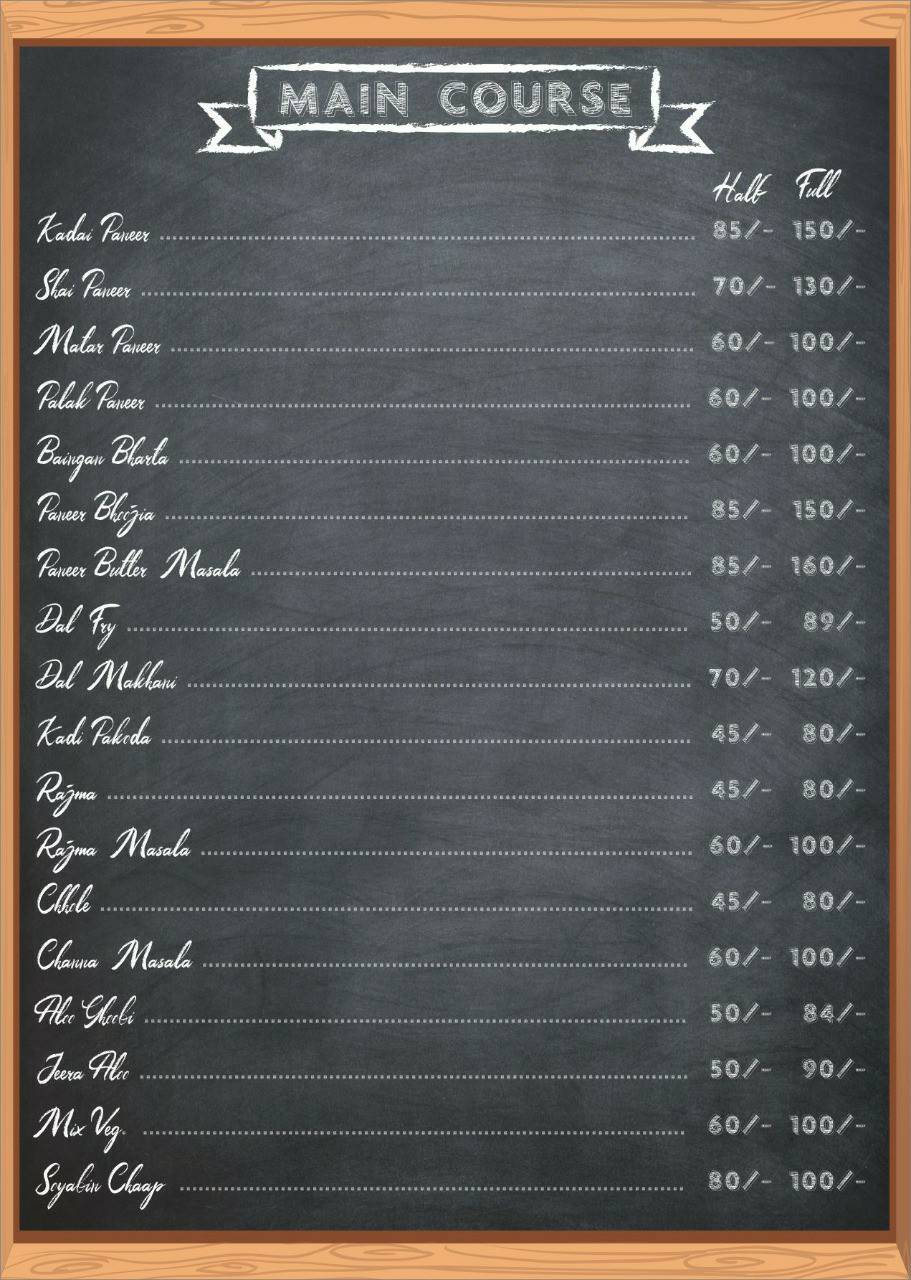 MAIN COURSE
Half Full
Kadai Paneer 85/- 150/-
Shai Paneer 70/- 130/-
Matar Paneer 60/- 100/-
Palak Paneer 60/- 100/-
Baingan Bharta 60/- 100/-
Paneer Bhojia 85/- 150/-
Paneer Butter Masala 85/- 160/-
Dal Fry 50/- 89/-
Dal Makhani 70/- 120/-
Kadi Pakoda 45/- 80/-
Rajma 45/- 80/-
Rajma Masala 60/- 100/-
Chhole 45/- 80/-
Channa Masala 60/- 100/-
Aloo Ghobi 50/- 84/-
Jeera Aloo 50/- 90/-
Mix Veg. 60/- 100/-
Soyabin Chaap 80/- 100/-